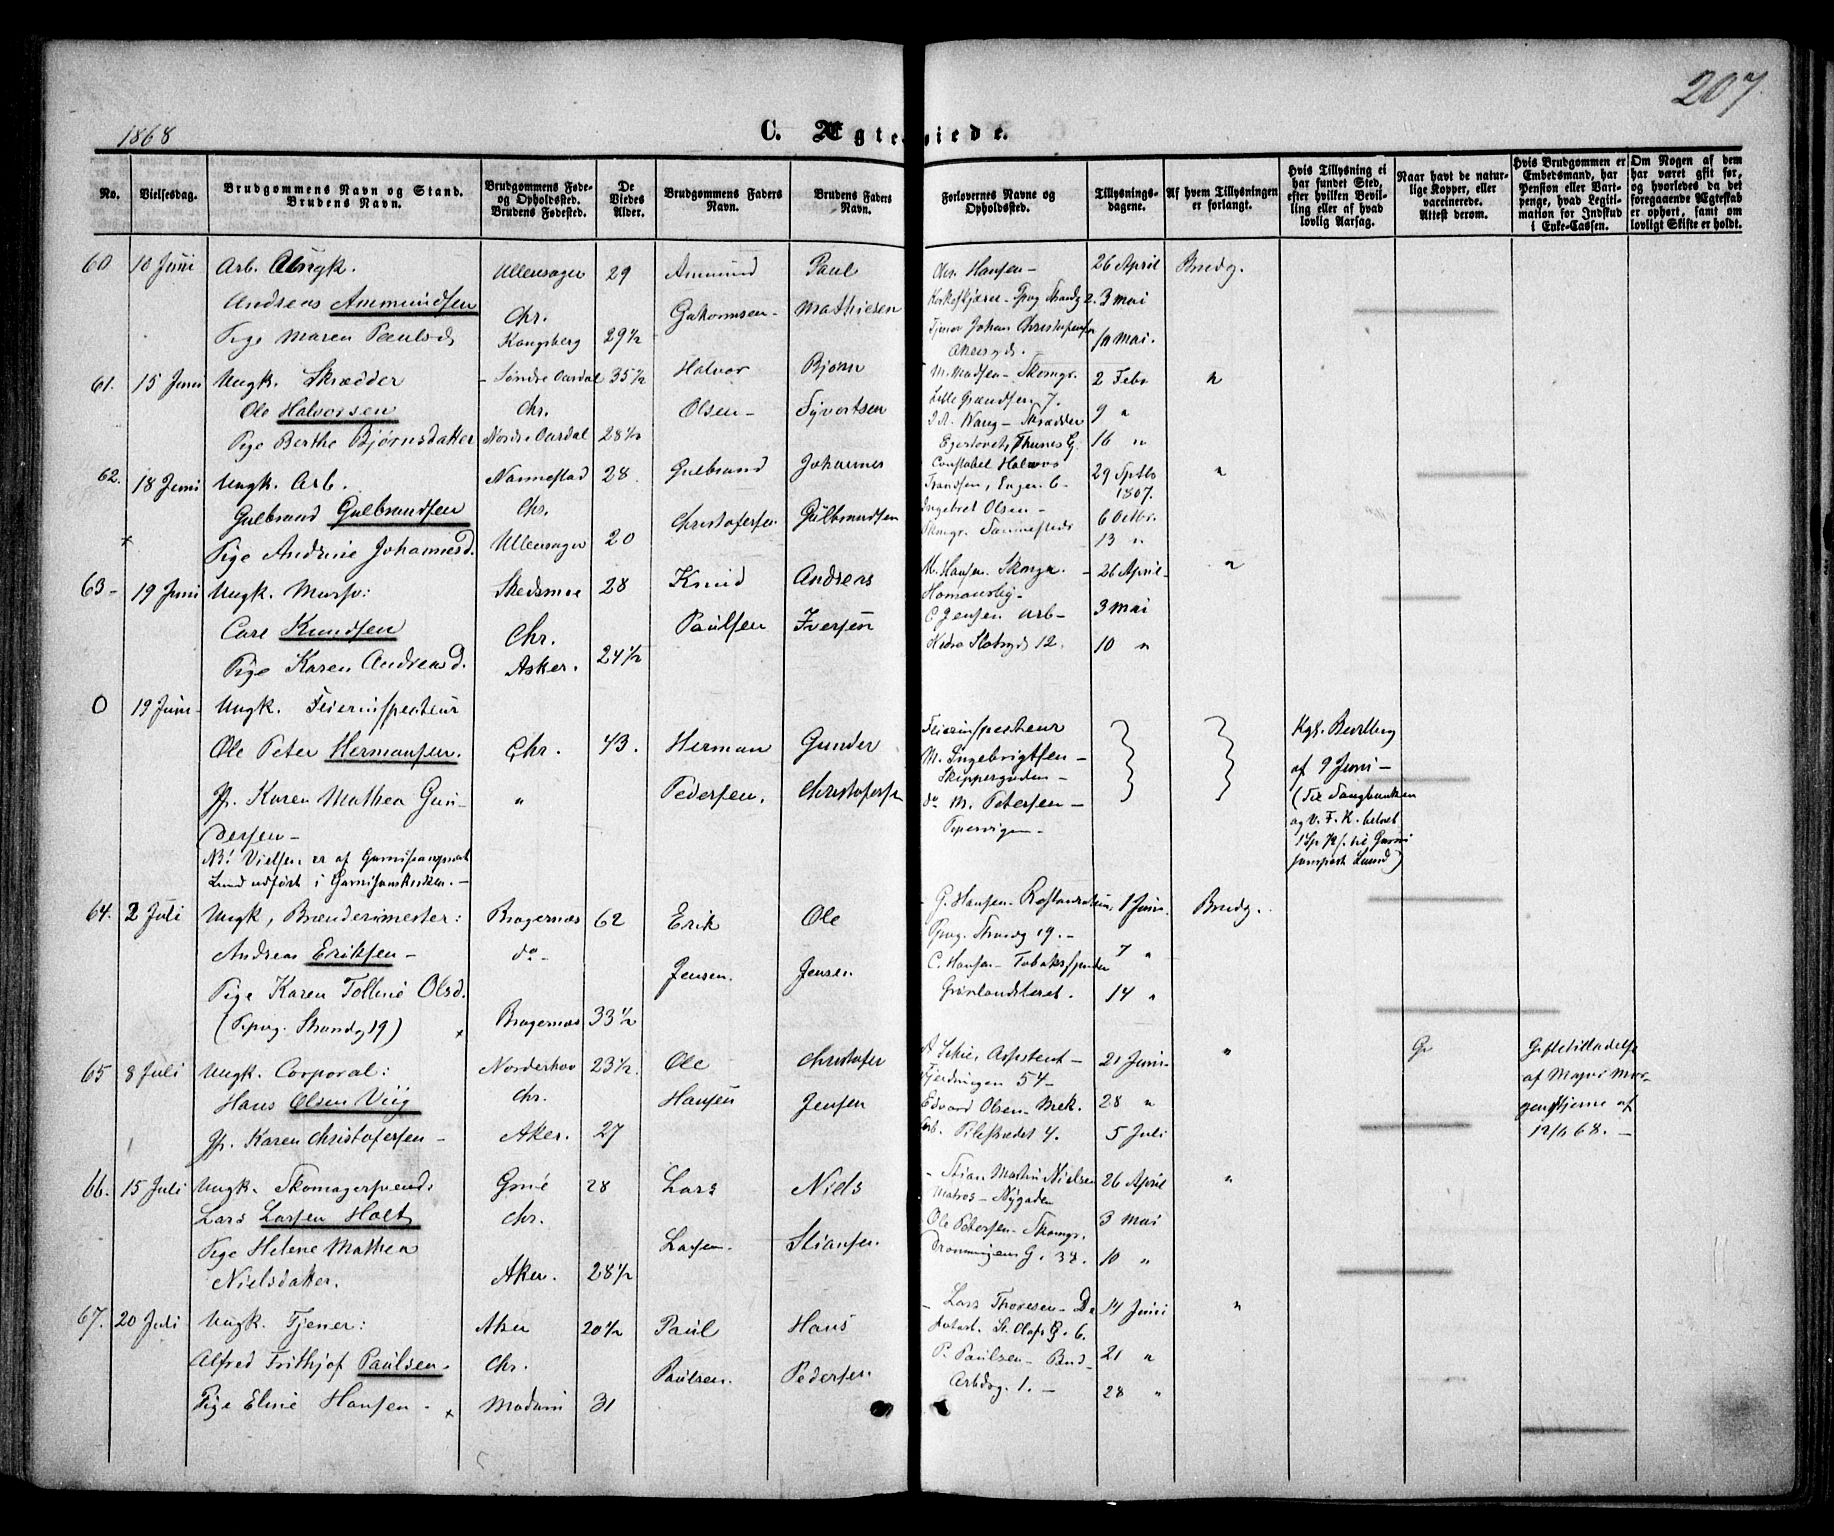 207.
1868
C. Ægteviede.
No.
Vielsesdag.
Brudgommens Navn og Stand.
Brudens Navn.
Brudgommens Føde-
og Opholdssted.
Brudens Fødested.
De
Viedes
Alder.
Brudgommens Faders
Navn.
Brudens Faders
Navn.
Forlovernes Navne og
Opholdssted.
Tillysnings-
dagene.
Af hvem Tillysningen
er forlangt.
Hvis Tillysning ei
har fundet Sted,
efter hvilken Bevil-
ling eller af hvad
lovlig Aarsag.
Naar havt de natur-
lige Kopper, eller
vaccinerede.
Attest derom.
Hvis Brudgommen er
Embedsmand, har
Pension eller Vart-
penge, hvad Legiti-
mation for Indskud
i Enke-Cassen.
Om Nogen af dem
har været gift før,
og hvorledes da det
foregaaende Ægteskab
er ophørt, samt om
lovligt Skifte er holdt.
60 10 Juni Arb. Ungk. Ullensager 29 Ammund Paul Chr. Hansen - 26 April Brudg.
Andreas Ammundsen Chr. Mathiesen 3 mai
Pige Maren Paulsd. Kongsberg 29½ Tjener Johan Christofersen 10 mai.
Akersgd.
61. 15 Juni Ungk. Skrædder Søndre Aurdal 35½ Halvor Bjørn M. Madsen - Skomgr. 2 Febr "
Ole Halvorsen Chr. Olsen - Syvertsen Lille Grændsen 7. 9 "
Pige Berthe Bjørnsdatter Nordre Aurdal 28½ Skrædder 16 "
62. 18 Juni Ungk. Arb. Nannestad 28 Gulbrand Johannes Constabel Halvor 29 Septb "
Gulbrand Gulbrandsen Chr. Christofersen Gulbrandsen Ingebret Olsen - 1867.
6 Octbr.
Pige Andrine Johannesd. Ullensager 20 Skomgr. 13 "
63 - 19 Juni Ungk. Skedsmoe 28 Knud Andreas M. Hansen Skomgr. - 26 April - "
Carl Knudsen Chr. Paulsen Iversen Homansby -
C Jensen Arb - 3 mai
Pige Karen Andreasd. Asker. 24½ 12. 10 "
0 19 Juni - Ungk. Feierinspecteur Feierinspecteur
Ole Peter Hermansen. Chr. 43. Herman Gunder M. Ingebrigtsen - Kgl. Bevilling
Skippergaden - af 9 Juni -
Jfr. Karen Mathea Gun- " Pedersen. Christofersen do M. Petersen -
dersen - Pipervigen -
NB! Vielsen er af Garnisonsprest
Lund udført i Garnisonskirken. -
og v. F. K. betalt
Lund)
64. 2 Juli Ungk, Brænderimester: Bragernæs 62 Erik Ole G. Hansen - 1 Juni. Brudg.
Andreas Eriksen - do - Jensen. Jensen Strandg 19. - 7 "
Pige Karen Olsd. C. Hansen - Tobakspinder
(Pipvg. Strandg 19) Bragernæs 33½ Grønlandsleret. 14 "
65 8 Juli Ungk. Corporal: Norderhov 23½ Ole Christofer Assistent - 21 Juni - " Giftetilladelse
Hans Olsen Viig Chr. Hansen Jensen Fjerdingen 54 - af Major Mor-
Edvard Olsen - Mek. 28 " genstjerne af
Jfr. Karen Christofersen - Aker. 27 Arb. Pilestrædet 4. 5 Juli 12/6 68. -
66. 15 Juli Ungk. Skomagersvend: Grue 28 Lars Niels Stian Martin Nielsen 26 April "
Lars Larsen Holt Chr. Larsen. Stiansen. Matros - Nygaden
Pige Helene Mathea Ole Petersen - Skomgr. 3 mai
Nielsdatter. Aker. 28½ Dronningens G. 34. 10 "
67. 20 Juli Ungk. Tjener: Aker 20½ Paul Hans Lars Thoresen - 14 Juni "
St. Olafs G. 6.
Alfred Frithjof Paulsen. Chr. Paulsen. Pedersen. P. Paulsen - Bud - 21 "
Pige Eline Hansen. Modum 31 1. - 28 "